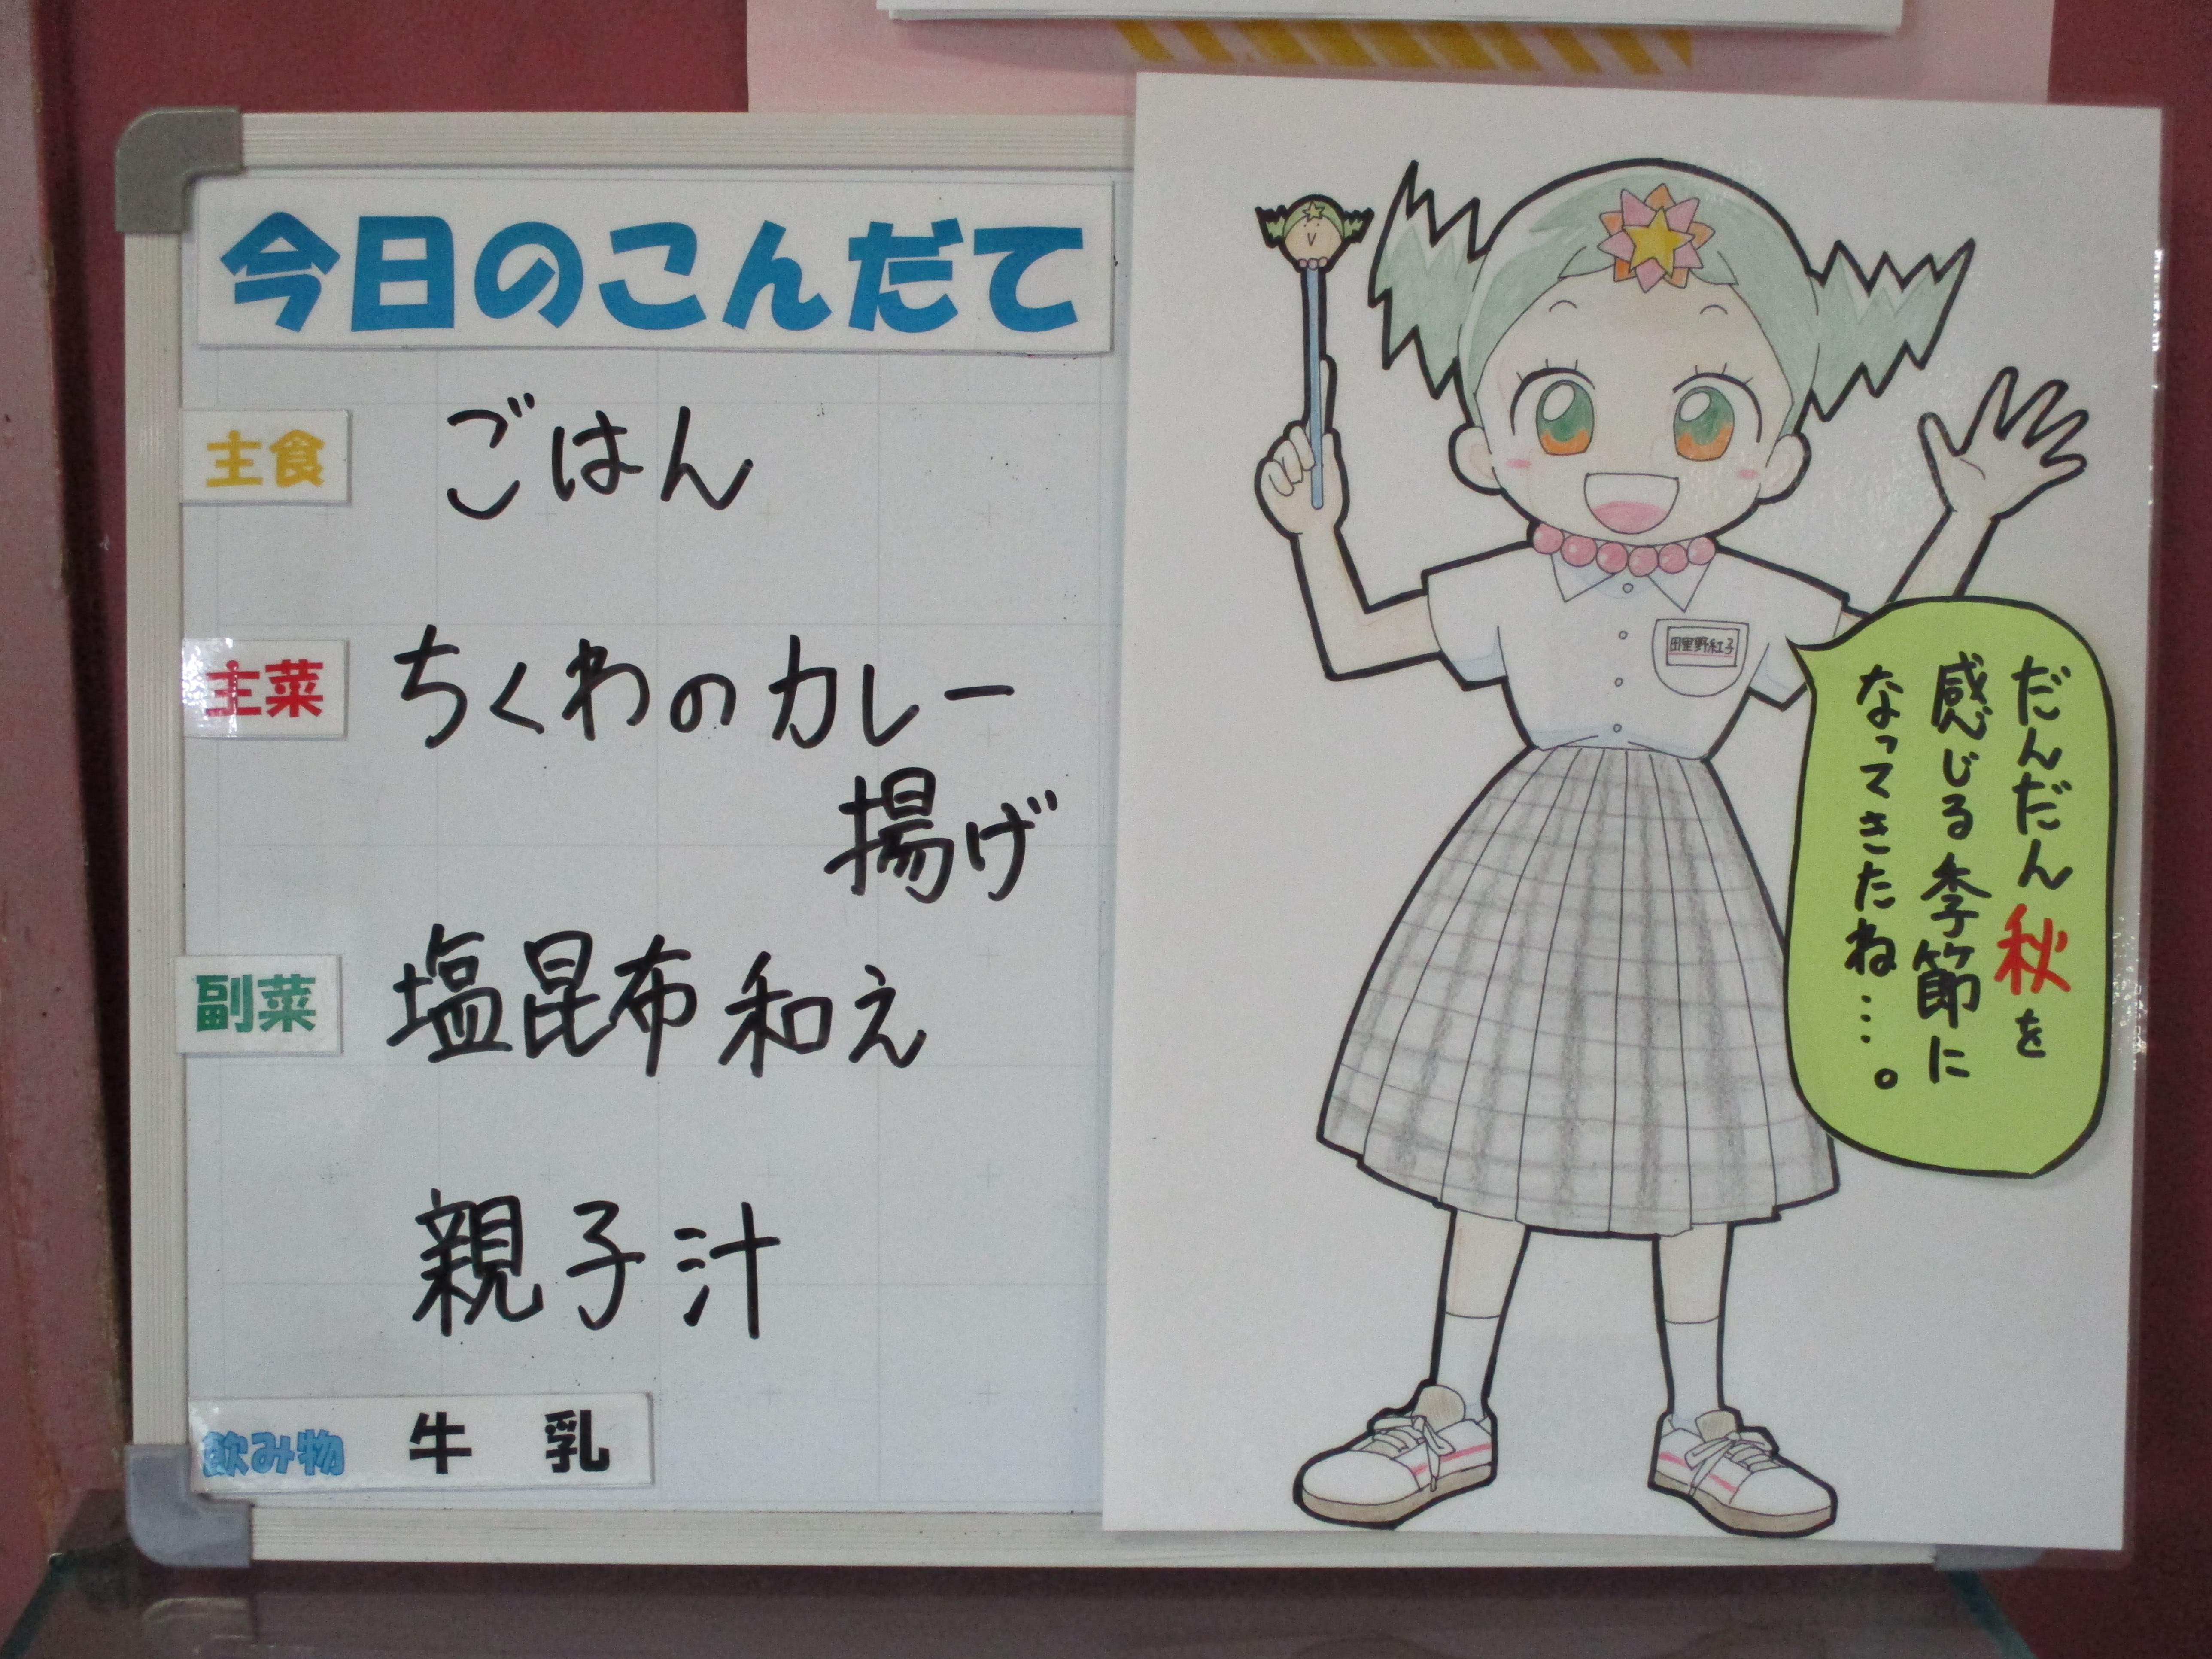 今日のこんだて
主食 ごはん
主菜 ちくわのカレー
揚げ
副菜 塩昆布和え
親子汁
飲み物 牛乳
田里野紅子
だんだん秋を
感じる季節に
なってきたね…。